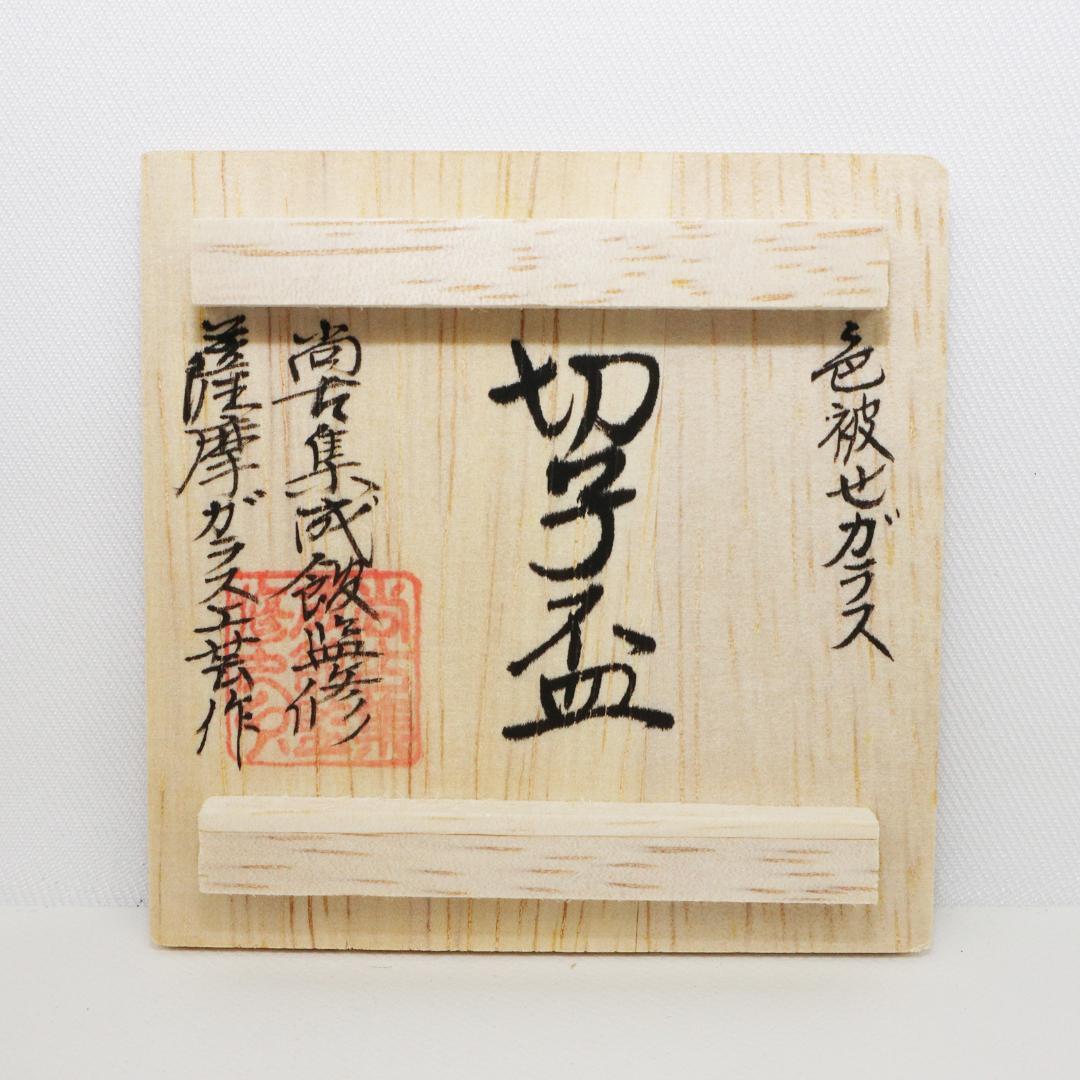 色被せガラス
切子盃
尚古集成館監修
薩摩ガラス工芸作